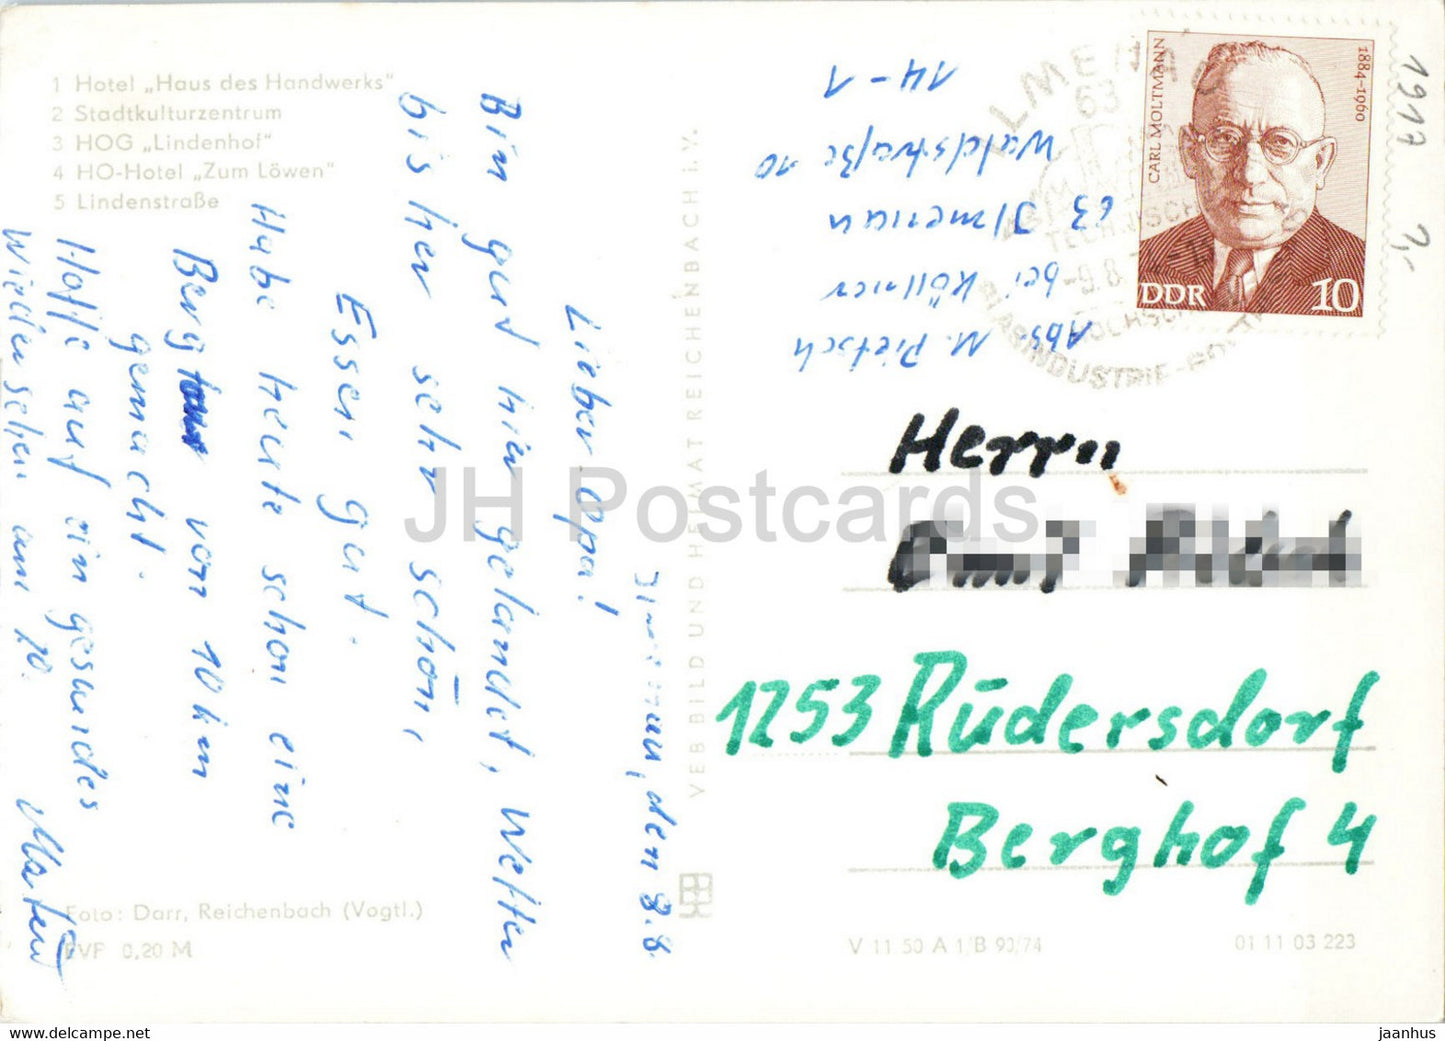 1 Hotel „Haus des Handwerks“
2 Stadtkulturzentrum
3 HOG „Lindenhof“
4 HO-Hotel „Zum Löwen“
5 Lindenstraße
den 8.8.
Lieber Opa!
Bin gut hier gelandet, Wetter
bisher sehr schön,
Essen gut.
Habe heute schon eine
Berg von 10 km
gemacht.
Hoffe auf ein gesundes
Wiedersehen am 20.
Martin
Foto: Darr, Reichenbach (Vogtl.)
EVF 0,20 M
VEB BILD UND HEIMAT REICHENBACH i.V.
Abs. M. Pietsch
bei Köllner
63 Ilmenau
Waldstraße 10
14-1
CARL MOLTMANN
1884-1960
DDR 10
ILMENAU
63
TECHNISCHE
HOCHSCHULE
GLASINDUSTRIE
1917
Herrn
1253 Rüdersdorf
Berghof 4
V 11 50 A 1/B 90/74
01 11 03 223
JH Postcards
jaanhus @ delcampe.net